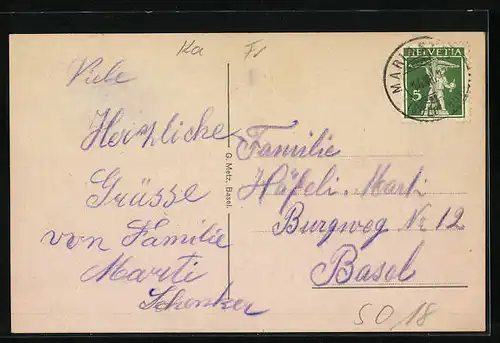 Ka Fr
Viele
Herzliche
Grüsse
von Familie
Marti
Schenker
G. Metz, Basel.
HELVETIA
5
Familie
Häfeli-Marti
Burgweg Nr 12
Basel
SO 18